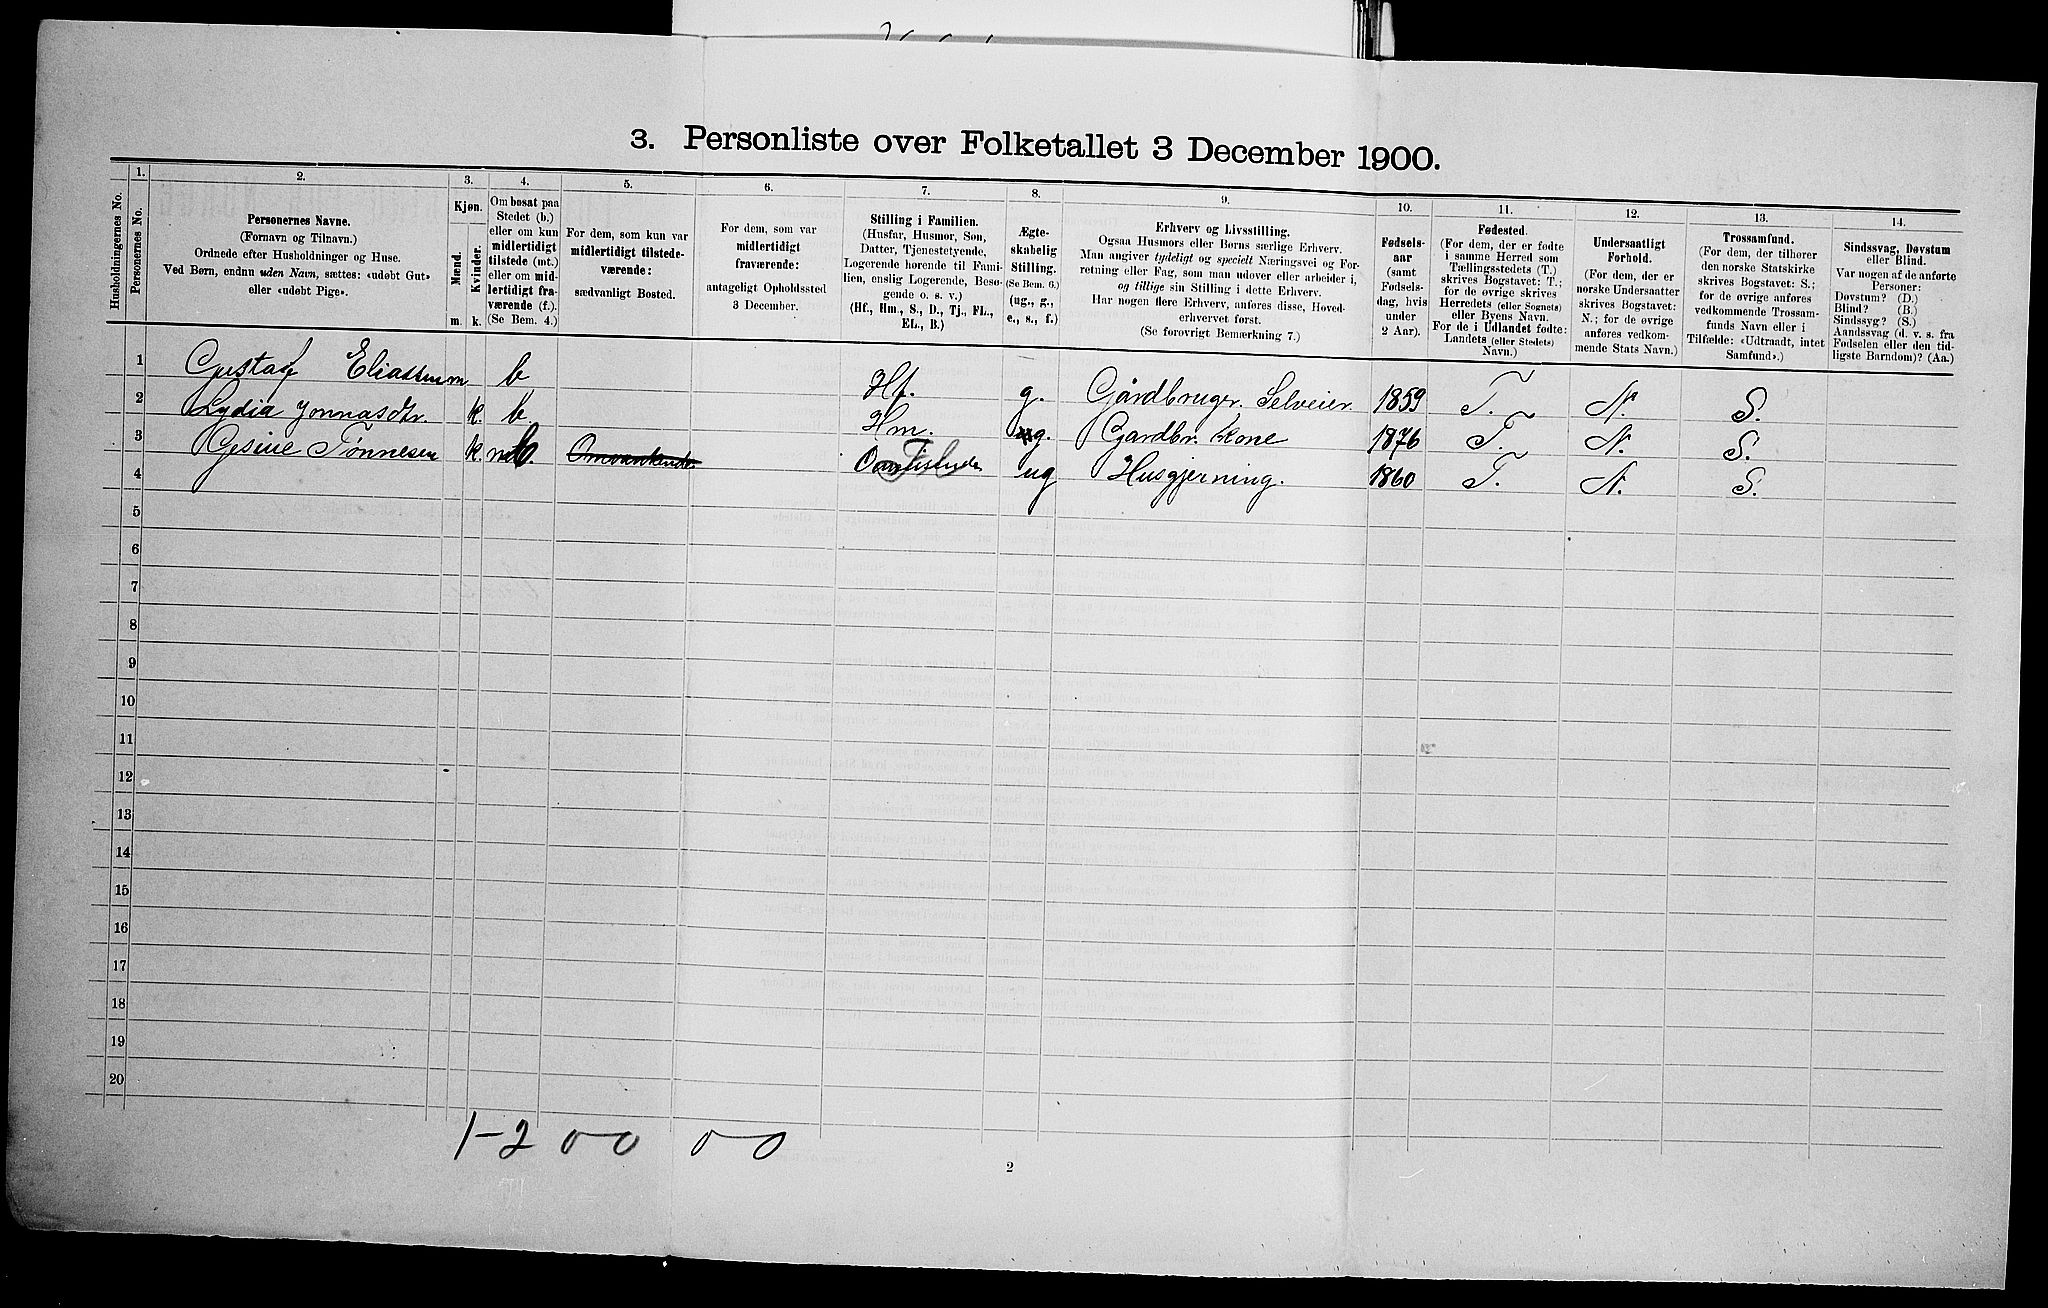 3. Personliste over Folketallet 3 December 1900.
Husholdningernes No.
1.
Personernes No.
2.
Personernes Navne.
(Fornavn og Tilnavn.)
Ordnede efter Husholdninger og Huse.
Ved Børn, endnu uden Navn, sættes: «udøbt Gut»
eller «udøbt Pige».
3.
Kjøn.
Mænd.
Kvinder.
m. k.
4.
Om bosat paa
Stedet (b.)
eller om kun
midlertidigt
tilstede (mt.)
eller om mid-
lertidigt fra-
værende (f.).
(Se Bem. 4.)
5.
For dem, som kun var
midlertidigt tilstede-
værende:
sædvanligt Bosted.
6.
For dem, som var
midlertidigt
fraværende:
antageligt Opholdssted
3 December.
7.
Stilling i Familien.
(Husfar, Husmor, Søn,
Datter, Tjenestetyende,
Logerende hørende til Fami-
lien, enslig Logerende, Besø-
gende o. s. v.)
(Hf., Hm., S., D., Tj., FL.,
EL., B.)
8.
Ægte-
skabelig
Stilling.
(Se Bem. 6.)
(ug., g.,
e., s., f.)
9.
Erhverv og Livsstilling.
Ogsaa Husmors eller Børns særlige Erhverv.
Man angiver tydeligt og specielt Næringsvei og For-
retning eller Fag, som man udover eller arbeider i,
og tillige sin Stilling i dette Erhverv.
Har nogen flere Erhverv, anføres disse, Hoved-
erhvervet først.
(Se forøvrigt Bemærkning 7.)
10.
Fødsels-
aar
(samt
Fødsels-
dag, hvis
under
2 Aar).
11.
Fødested.
(For dem, der er fødte
i samme Herred som
Tællingsstedets (T.)
skrives Bogstavet: T.;
for de øvrige skrives
Herredets (eller Sognets)
eller Byens Navn.
For de i Udlandet fødte:
Landets (eller Stedets)
Navn.)
12.
Undersaatligt
Forhold.
(For dem, der er
norske Undersaatter
skrives Bogstavet:
N.; for de øvrige
anføres vedkom-
mende Stats Navn.)
13.
Trossamfund.
(For dem, der tilhører
den norske Statskirke
skrives Bogstavet: S.;
for de øvrige anføres
vedkommende Trossam-
funds Navn eller i
Tilfælde: «Udtraadt, intet
Samfund».)
14.
Sindssvag, Døvstum
eller Blind.
Var nogen af de anførte
Personer:
Døvstum? (D.)
Blind? (B.)
Sindssyg? (S.)
Aandssvag (d. v. s. fra
Fødselen eller den tid-
ligste Barndom)? (Aa.)
1 Gustaf Eliassen m b Hf. g. Gårdbruger. Selveier. 1859 T. N. S.
2 Lydia Jonnasdtr. k. b. Hm. g. Gardbr. Kone 1876 T. N. S.
3 Gesine Tønnesen k. b. Omvankende ug Husgjerning. 1860 T. N. S.
4
5
6
7
8
9
10
11
12
13
14
15
16
17
18
19
20
1-2 0 0 0 0
2